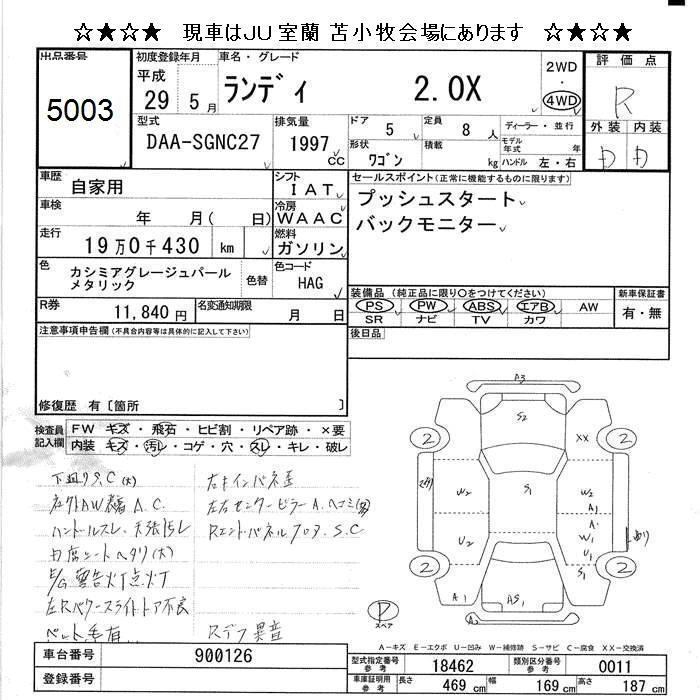 ☆★☆★ 現車はJU室蘭 苫小牧会場にあります ☆★☆★
出品番号
5003
初度登録年月
平成
29 5月
車名・グレード
ランディ 2.0X
2WD
・
4WD
評価点
R
外装 内装
D D
型式
DAA-SGNC27
排気量
1997 CC
ドア 5
定員 8 人
形状 ワゴン
積載 kg
ディーラー・並行
モデル年式 年
ハンドル 左・右
車歴 自家用
シフト IAT
車検 年 月( 日)
冷房 WAAC
走行 19万0千430 km
燃料 ガソリン
色 カシミアグレージュパール
メタリック
色替
色コード HAG
R券 11,840円
名変通知期限 月 日
セールスポイント(正常に機能するものに限ります)
プッシュスタート
バックモニター
装備品(純正品に限り○をつけてください)
PS PW ABS エアB AW
SR ナビ TV カワ
新車保証書
有・無
後日品
注意事項申告欄(不具合内容等は具体的に記入して下さい)
修復歴 有〔箇所 〕
検査員
記入欄
FW キズ・飛石・ヒビ割・リペア跡・×要
内装 キズ・汚レ・コゲ・穴・スレ・キレ・破レ
下廻りS.C(大)
左外AW A.C.
ハンドルスレ、天張汚レ
内席シートヘタリ(大)
E/G警告灯点灯
左Rパワースライドドア不良
ペット毛有
右キインパネ歪
左右センターピラーA.ヘコミ
Rエンドパネル フロア S.C
Rデフ異音
A3
S2
XX
2
2
W2
S1
W2
A1
A
W1
U2
U1
S1
2
2
A1
AS1
A1
A2
P
スペア
A−キズ E−エクボ U−凹み W−補修跡 S−サビ C−腐食 XX−交換済
車台番号 900126
登録番号
型式指定番号
参考
18462
類別区分番号
参考
0011
車庫証明用
参考
長さ 469 cm
幅 169 cm
高さ 187 cm